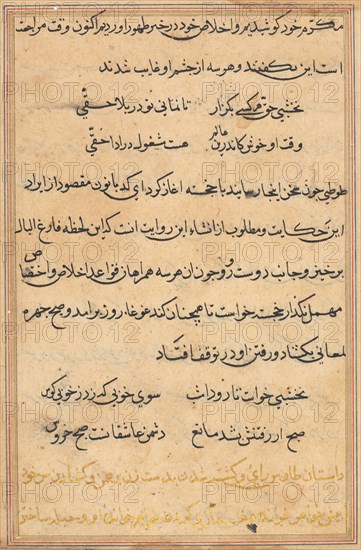 مکرمه خود کوشیدیم و اخلاص خود در خیر ظهور آوردیم اکنون وقت مراجعت
است این بگفتند و هر سه از چشم او غایب شدند
نخشبی حق هر کسی بگزار تا نمانی تو در بلا حقی
وقت او خوش کاندرین عالم هست مشغول در ادا حقی
طوطی چون سخن اینجا رسانید با خجسته آغاز کرد ای کدبانو مقصود از ایراد
این حکایت و مطلوب از انشاء این روایت آنست که این لحظه فارغ البال
برخیز و جانب دوست رو و چون آن هر سه همراهان قواعد اخلاص و اختصاص
مهمل نگذار خجسته خواست تا همچنان کند غوغاء روز برآمد و صبح چهره
لمعانی بگشاد و رفتن او در توقف افتاد
نخشبی خواست تا رود امشب سوی خوبی که زد ز خوبی کوس
صبح از رفتنش شد مانع دشمن عاشقانست صبح خروس
داستان و کشته شدن بدست زن